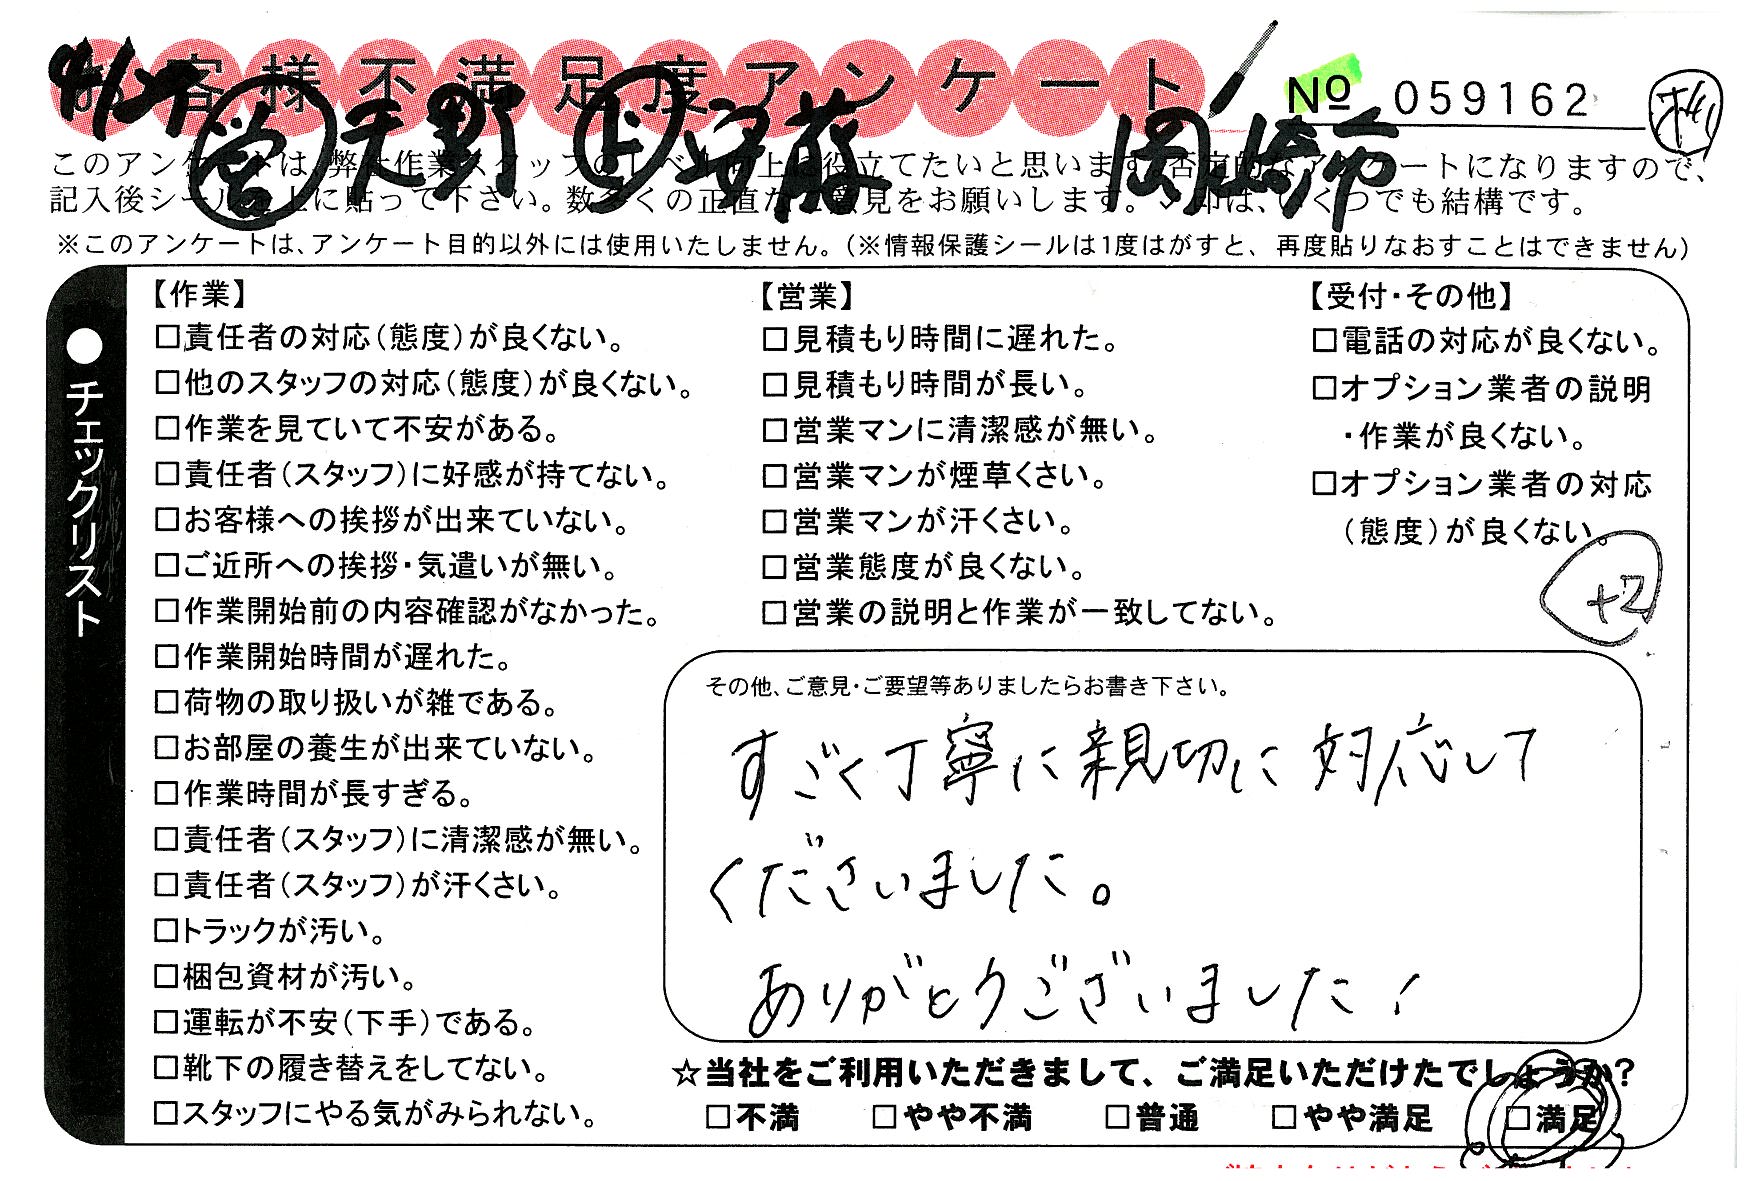 お客様不満足度アンケート
No 059162
4/27 営 天野 上 安藤 岡崎市
このアンケートは、弊社作業スタッフのレベル向上に役立てたいと思います。否定的なアンケートになりますので、
記入後シールを上に貼って下さい。数多くの正直なご意見をお願いします。✓印は、いくつでも結構です。
※このアンケートは、アンケート目的以外には使用いたしません。(※情報保護シールは1度はがすと、再度貼りなおすことはできません)
●チェックリスト
【作業】
□責任者の対応(態度)が良くない。
□他のスタッフの対応(態度)が良くない。
□作業を見ていて不安がある。
□責任者(スタッフ)に好感が持てない。
□お客様への挨拶が出来ていない。
□ご近所への挨拶・気遣いが無い。
□作業開始前の内容確認がなかった。
□作業開始時間が遅れた。
□荷物の取り扱いが雑である。
□お部屋の養生が出来ていない。
□作業時間が長すぎる。
□責任者(スタッフ)に清潔感が無い。
□責任者(スタッフ)が汗くさい。
□トラックが汚い。
□梱包資材が汚い。
□運転が不安(下手)である。
□靴下の履き替えをしてない。
□スタッフにやる気がみられない。
【営業】
□見積もり時間に遅れた。
□見積もり時間が長い。
□営業マンに清潔感が無い。
□営業マンが煙草くさい。
□営業マンが汗くさい。
□営業態度が良くない。
□営業の説明と作業が一致してない。
【受付・その他】
□電話の対応が良くない。
□オプション業者の説明
・作業が良くない。
□オプション業者の対応
(態度)が良くない。
+2
その他、ご意見・ご要望等ありましたらお書き下さい。
すごく丁寧に親切に対応して
くださいました。
ありがとうございました!
☆当社をご利用いただきまして、ご満足いただけたでしょうか?
□不満 □やや不満 □普通 □やや満足 □満足